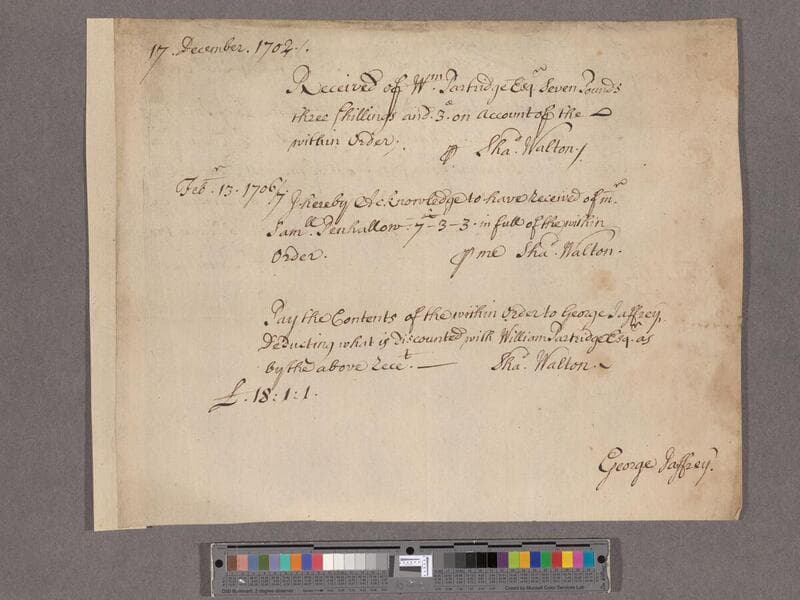 17. December. 1702/.
Received of Wm. Partridge Esqr Seven Pounds
three shillings and .3d. on Account of the
within Order.
⅌ Shad. Walton/.
Febr. 13. 1706/7 I hereby Acknowledge to have Received of mr
Samll Penhallow - 7 - 3 - 3 . in full of the within
Order. ⅌ me Shad. Walton.
Pay the Contents of the within Order to George Jaffrey.
Deducting what is discounted with William Partridge Esqr. as
by the above Recet. — Shad. Walton.
£. 18 : 1 : 1 .
George Jaffrey.